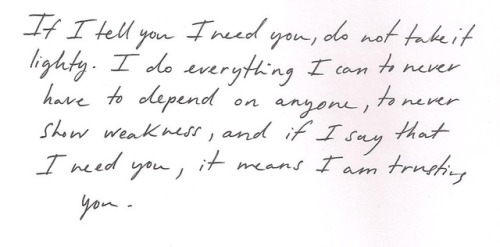 If I tell you I need you, do not take it
lighty. I do everything I can to never
have to depend on anyone, to never
show weakness, and if I say that
I need you, it means I am trusting
you.